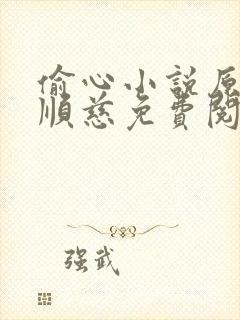 偷心小說原
順慈免費閱
强武